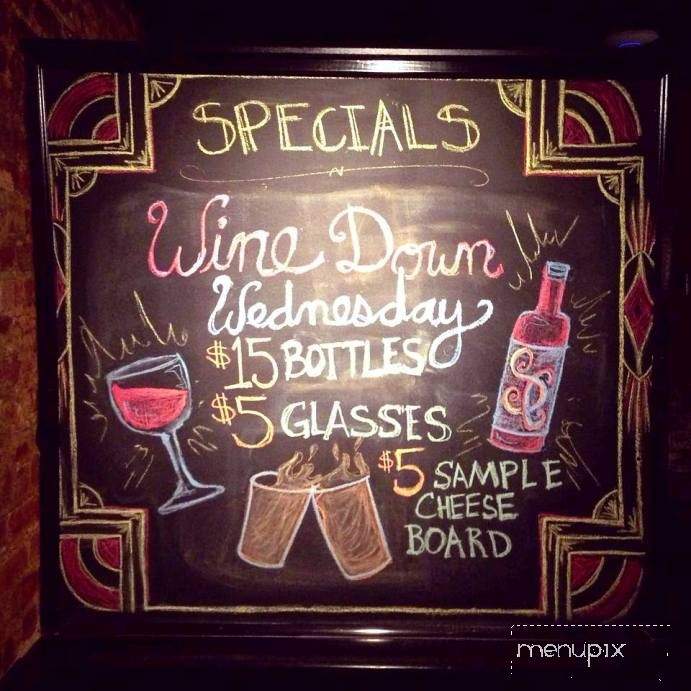 SPECIALS
Wine Down
Wednesday
$15 BOTTLES
$5 GLASSES
$5 SAMPLE
CHEESE
BOARD
menupix